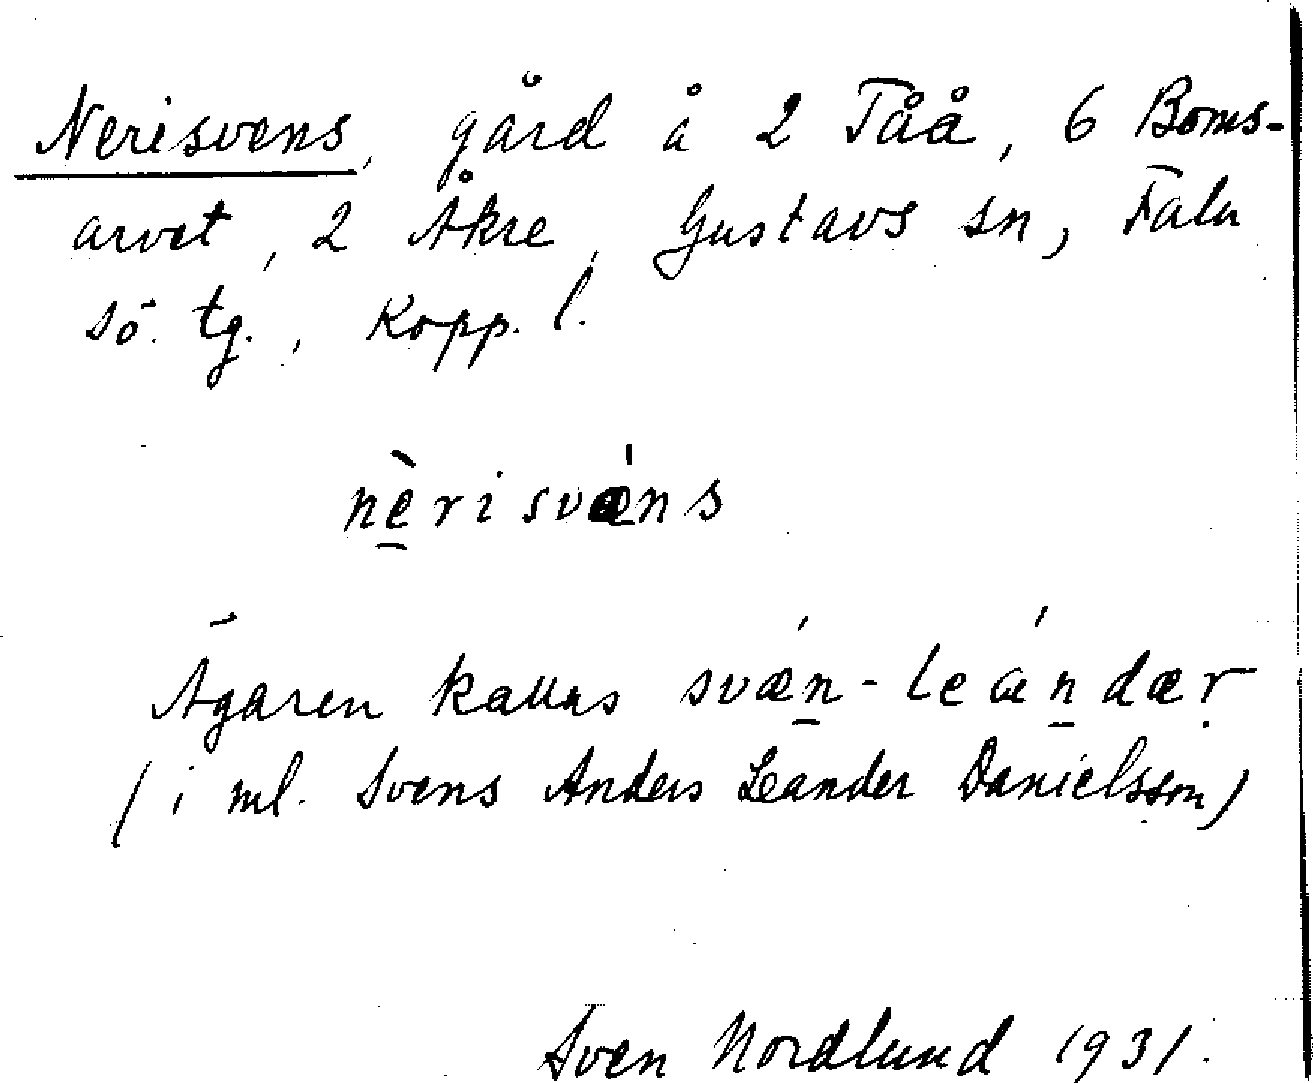 Nerisvens, gård å 2 Tåå, 6 Boms-
arvet, 2 Åkre, Gustavs sn, Falu
sö. tg., Kopp. l.
nè̱risvǽns
Ägaren kallas svǽn̲-leán̲dæṛ
(i ml. Svens Anders Leander Danielsson)
Sven Nordlund 1931.